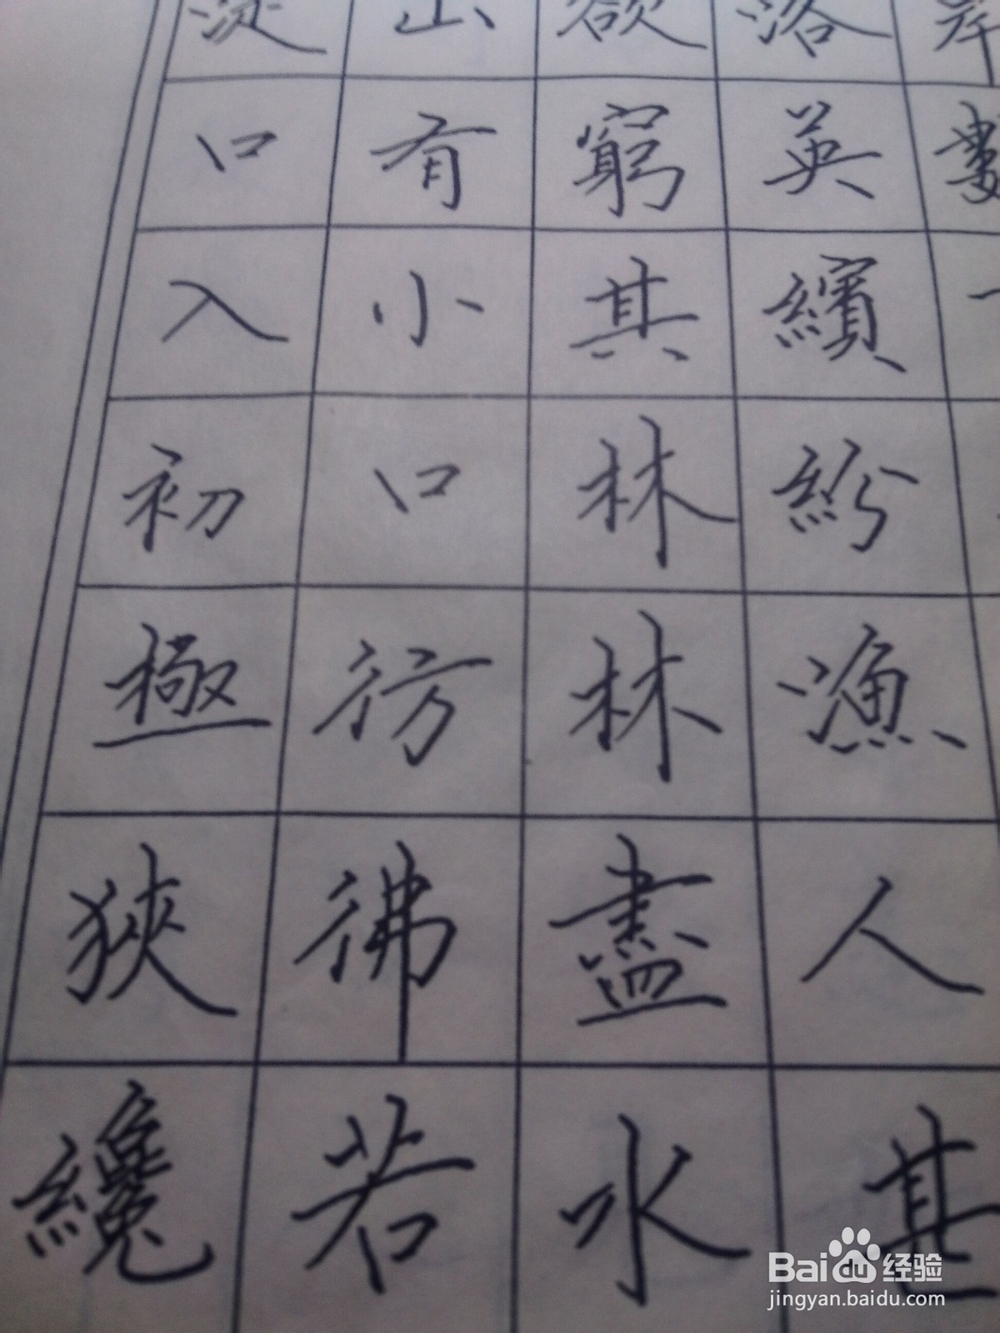 岸數
落英繽紛漁人甚
欲窮其林林盡水
山有小口彷彿若
口入初極狹纔
Baidu 经验
jingyan.baidu.com